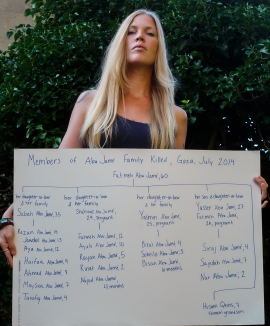 Members of Abu Jame Family Killed, Gaza, July 2014
Fatmeh Abu Jame, 60
her daughter-in-law
& her family
Sabah Abu Jame, 35
Razan Abu Jame, 14
Jawdat Abu Jame, 13
Aya Abu Jame, 12
Haifaa Abu Jame, 9
Ahmad Abu Jame, 8
Maysoon Abu Jame, 7
Tawfiq Abu Jame, 4
her daughter-in-law
& her family
Shahinaz Abu Jame,
29, pregnant
Fatmeh Abu Jame, 12
Ayub Abu Jame, 10
Rayan Abu Jame, 5
Rinat Abu Jame, 2
Nujud Abu Jame,
4 months
her daughter-in-law
& her family
Yasmin Abu Jame,
25, pregnant
Batul Abu Jame, 4
Soheila Abu Jame, 3
Bisan Abu Jame,
6 months
her son & daughter-in-law
Yasser Abu Jame, 27
Fatmeh Abu Jame,
26, pregnant
Siraj Abu Jame, 4
Sajedah Abu Jame, 7
Nur Abu Jame, 2
Husam Qbeis, 7